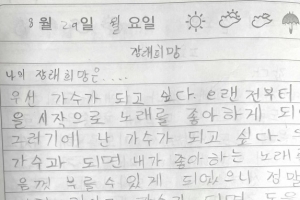 8월 29일 월요일
장래희망
나의 장래희망은....
우선 가수가 되고 싶다. 오랜전부터
을 시작으로 노래를 좋아하게 되
그러기에 난 가수가 되고 싶다.
가수과 되면 내가 좋아하는 노래를
음껏 부를수 있게 되었으니 정말